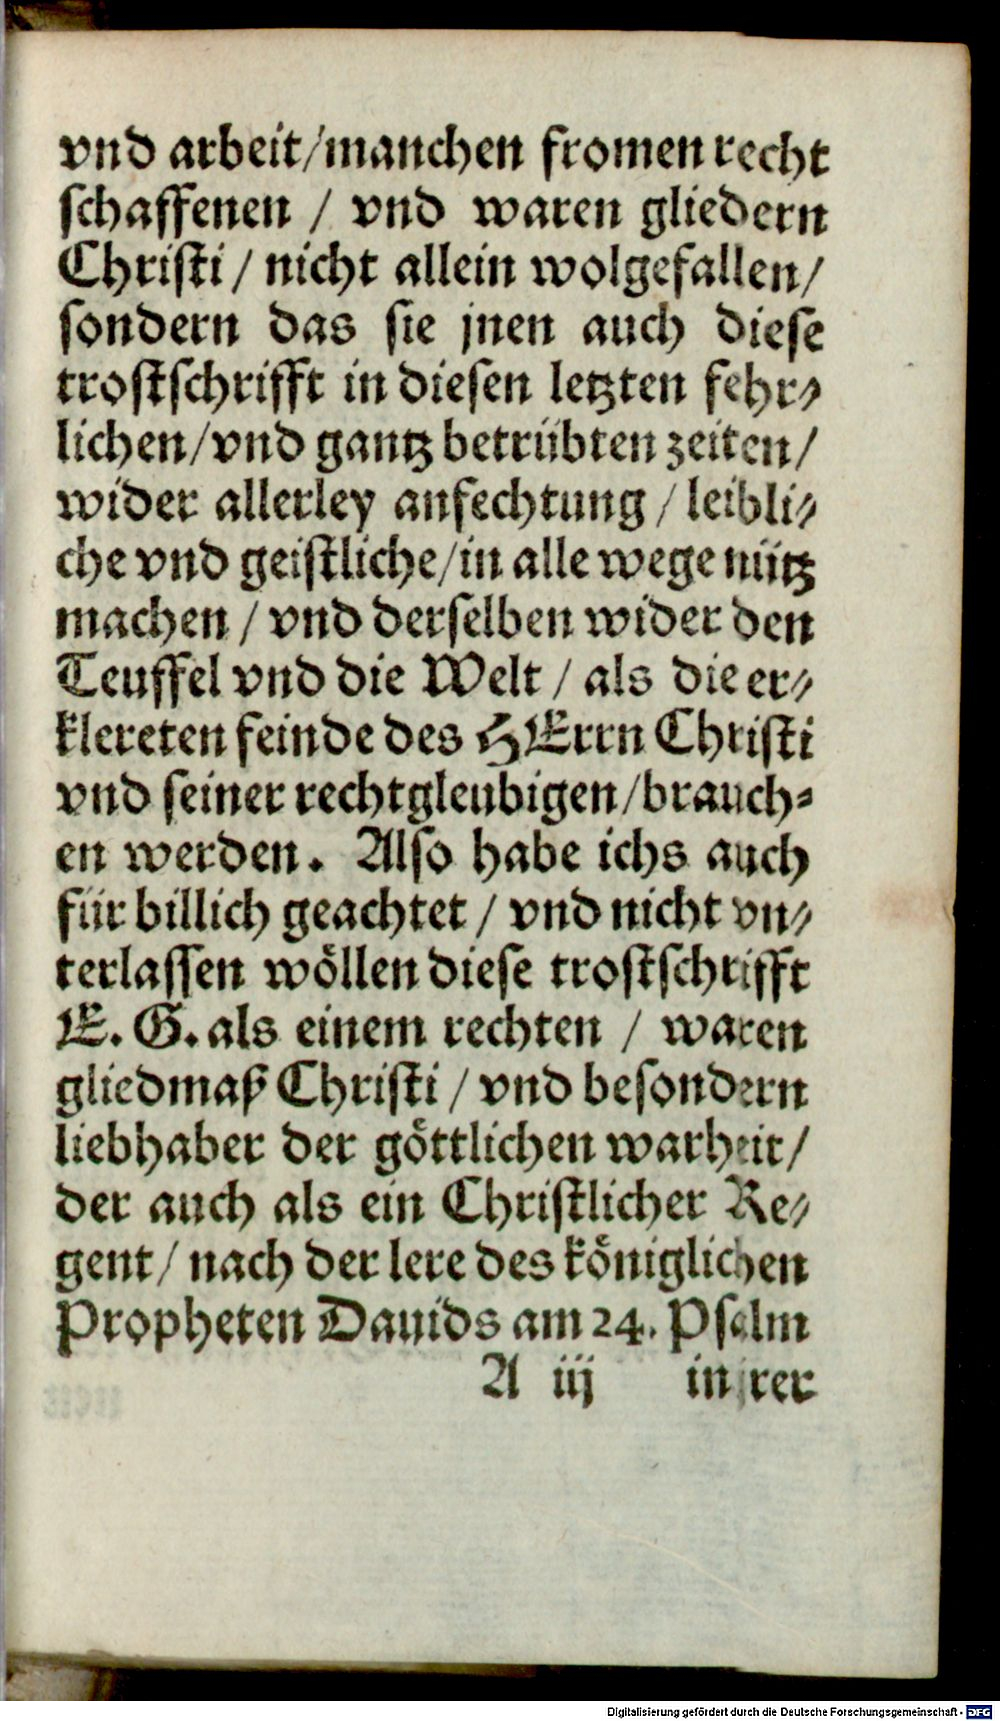 vnd arbeit/manchen fromen recht
schaffenen / vnd waren gliedern
Christi / nicht allein wolgefallen/
sondern das sie jnen auch diese
trostschrifft in diesen letzten fehr⸗
lichen/vnd gantz betrübten zeiten/
wider allerley anfechtung / leibli⸗
che vnd geistliche/in alle wege nütz
machen / vnd derselben wider den
Teuffel vnd die Welt / als die er⸗
klereten feinde des HErrn Christi
vnd seiner rechtgleubigen/brauch⸗
en werden. Also habe ichs auch
für billich geachtet / vnd nicht vn⸗
terlassen wöllen diese trostschrifft
E. G. als einem rechten / waren
gliedmaß Christi / vnd besondern
liebhaber der göttlichen warheit/
der auch als ein Christlicher Re⸗
gent/ nach der lere des königlichen
Propheten Dauids am 24. Psalm
A iij in jrer
Digitalisierung gefördert durch die Deutsche Forschungsgemeinschaft - DFG